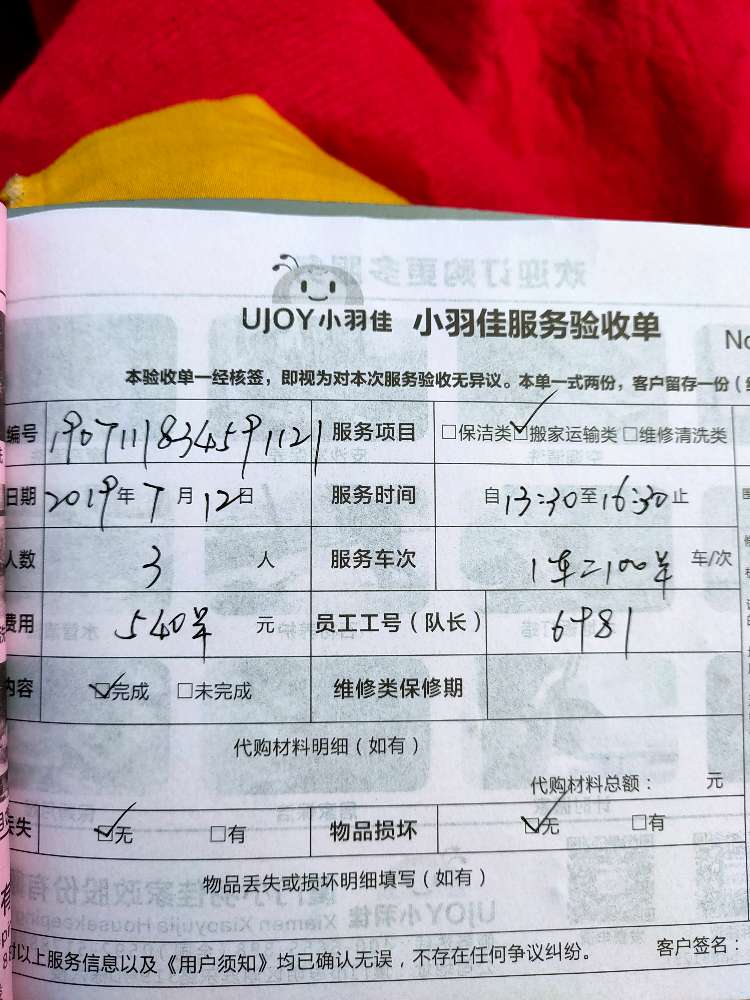 UJOY小羽佳 小羽佳服务验收单 No
本验收单一经核签，即视为对本次服务验收无异议。本单一式两份，客户留存一份（
编号 1907111834591121 服务项目 □保洁类 ☑搬家运输类 □维修清洗类
日期 2019年7月12日 服务时间 自13:30至16:30止
人数 3 人 服务车次 1车=100单 车/次
费用 540单 元 员工工号（队长） 6981
内容 ☑完成 □未完成 维修类保修期
代购材料明细（如有）
代购材料总额： 元
丢失 ☑无 □有 物品损坏 ☑无 □有
物品丢失或损坏明细填写（如有）
对以上服务信息以及《用户须知》均已确认无误，不存在任何争议纠纷。 客户签名：